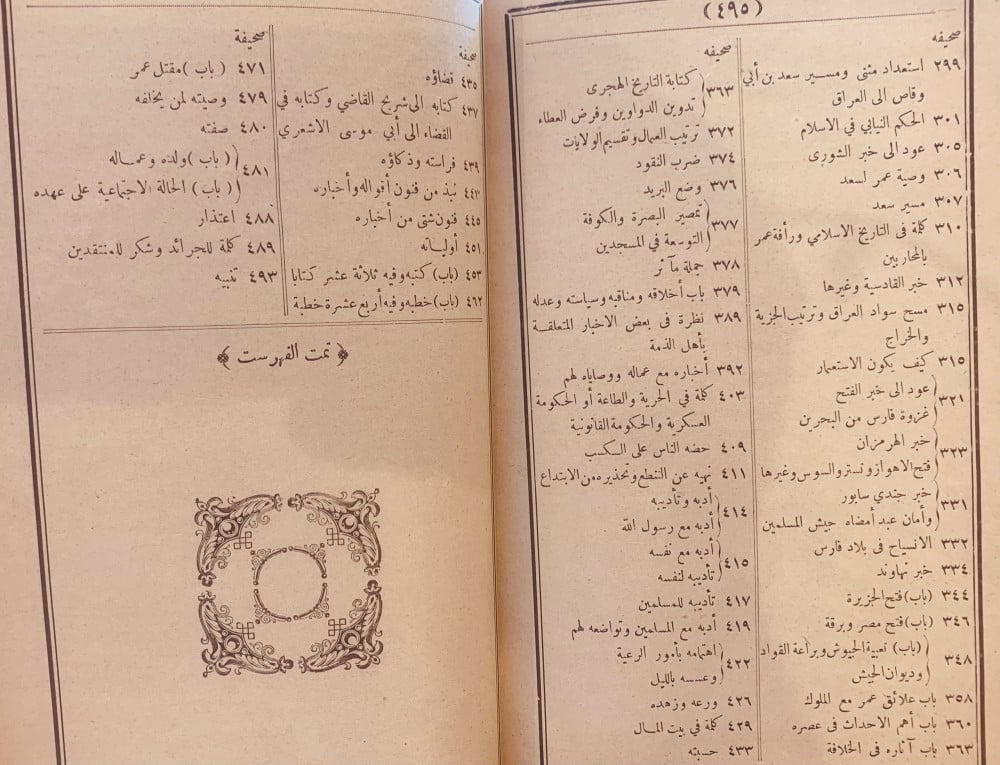 (٤٩٥)
صحيفه
٢٩٩ استعداد مثنى ومسير سعد بن أبي
وقاص الى العراق
٣٠١ الحكم النيابي في الاسلام
٣٠٥ عود الى خبر الشورى
٣٠٦ وصية عمر لسعد
٣٠٧ مسير سعد
٣١٠ كلمة فى التاريخ الاسلامي ورأفة عمر
بالمحاربين
٣١٢ خبر القادسية وغيرها
٣١٥ مسح سواد العراق وترتيب الجزية
والخراج
٣١٥ كيف يكون الاستعمار
٣٢١ عود الى خبر الفتح
غزوة فارس من البحرين
٣٢٣ خبر الهرمزان
فتح الاهواز وتستر والسوس وغيرها
٣٣١ خبر جندي سابور
وأمان عبد أمضاه جيش المسلمين
٣٣٢ الانسياح فى بلاد فارس
٣٣٤ خبر نهاوند
٣٤٤ (باب) فتح الجزيرة
٣٤٦ (باب) فتح مصر وبرقة
٣٤٨ (باب) تعبية الجيوش وبراعة القواد
وديوان الجيش
٣٥٨ باب علائق عمر مع الملوك
٣٦٠ باب أهم الاحداث فى عصره
٣٦٣ باب آثاره فى الخلافة
صحيفه
٣٦٣ كتابة التاريخ الهجرى
تدوين الدواوين وفرض العطاء
٣٧٢ ترتيب العمال وتقسيم الولايات
٣٧٤ ضرب النقود
٣٧٦ وضع البريد
٣٧٧ تمصير البصرة والكوفة
التوسعة في المسجدين
٣٧٨ جملة مآثر
٣٧٩ باب أخلاقه ومناقبه وسياسته وعدله
٣٨٩ نظرة فى بعض الاخبار المتعلقة
بأهل الذمة
٣٩٢ أخباره مع عماله ووصاياه لهم
٤٠٣ كلمة في الحرية والطاعة أو الحكومة
العسكرية والحكومة القانونية
٤٠٩ حضه الناس على الكسب
٤١١ نهيه عن التنطع وتحذيره من الابتداع
٤١٤ أدبه وتأديبه
أدبه مع رسول الله
٤١٥ أدبه مع نفسه
تأديبه لنفسه
٤١٧ تأديبه للمسلمين
٤١٩ أدبه مع المسلمين وتواضعه لهم
٤٢٢ اهتمامه بأمور الرعية
وعسسه بالليل
٤٢٦ ورعه وزهده
٤٢٩ كلمة في بيت المال
٤٣٣ حسبته
صحيفة
٤٣٥ قضاؤه
٤٣٧ كتابه الى شريح القاضي وكتابه في
القضاء الى أبي موسى الاشعري
٤٣٩ فراسته وذكاؤه
٤٤٣ نبذ من فنون أقواله وأخباره
٤٤٥ فنون شتى من أخباره
٤٥١ أولياته
٤٥٣ (باب) كتبه وفيه ثلاثة عشر كتابا
٤٦٢ (باب) خطبه وفيه أربع عشرة خطبة
صحيفة
٤٧١ (باب) مقتل عمر
٤٧٩ وصيته لمن يخلفه
٤٨٠ صفته
٤٨١ (باب) ولده وعماله
(باب) الحالة الاجتماعية على عهده
٤٨٨ اعتذار
٤٨٩ كلمة للجرائد وشكر للمنتقدين
٤٩٣ تنبيه
﴿ تمت الفهرست ﴾